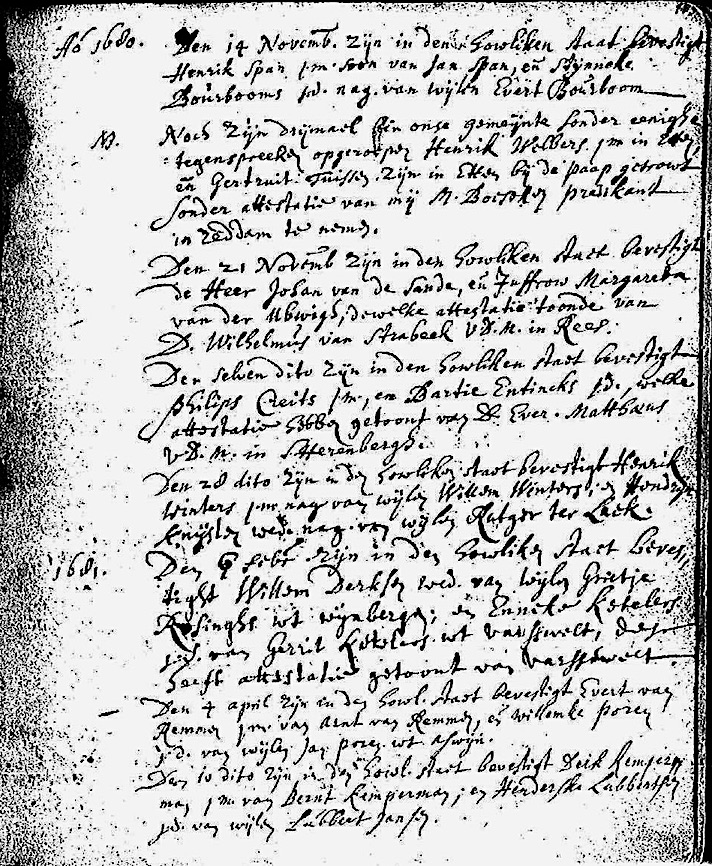 Aō 1680. Den 14 Novemb. zijn in den houliken staat bevestigt
Henrik Span j.m. soon van Jan Span, eñ Stijnneke
Bourbooms j.d. nag. van wijlen Evert Bourboom
N. Noch zijn drijmael in onse gemeijnte sonder eenighe
tegenspreeken opgeroepen Henrik Welbers j.m. in Etten
eñ Gertruit Tuissen zijn in Etten bij de paap getrouwt
sonder attestatie van mij M. predikant
in Zeddam te nemen.
Den 21 Novemb zijn in den houliken staet bevestigt
de Heer Johan van de Sande, eñ Juffrow Margareta
van der dewelke attestatie toonde van
D. Wilhelmus van Strabeek V.D.M. in Rees.
Den selven dito zijn in den houliken staet bevestigt
Philips j.m., en Bartie Entincks j.d., welke
attestatie hebben getoont van D. Ever. Matthæus
V.D.M. in SHerenbergh.
Den 28 dito zijn in den houliken staet bevestigt Henrik
Winters j.m. nag van wijlen Willem Winters, en
wed. nag. van wijlen Rutger ter
1681. Den 6 Febr zijn in den houliken staet beves,
tight Willem Derksen wed. van wijlen Grietje
tot wijnbergen; en Enneke Ketelers
j.d. van Gerrit Ketelers tot varsswelt, dese
heeft attestatie getoont van varsswelt
Den 4 april zijn in den houl. staet bevestigt Evert van
Remmen j.m. van Arnt van Remmen, eñ Willemke poren
j.d. van wijlen Jan poren tot
Den 10 dito zijn in den houl. staet bevestigt Derk Kemper
man j.m. van Bernt Kemperman; en Henderske Lubbertsen
j.d. van wijlen Lubbert Jansen.